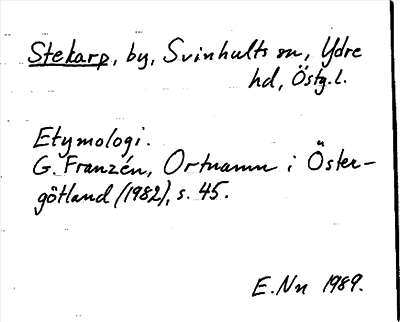 Stekarp, by, Svinhults sn, Ydre
hd, Östg.l.
Etymologi.
G. Franzén, Ortnamn i Öster-
götland (1982), s. 45.
E. Nn 1989.